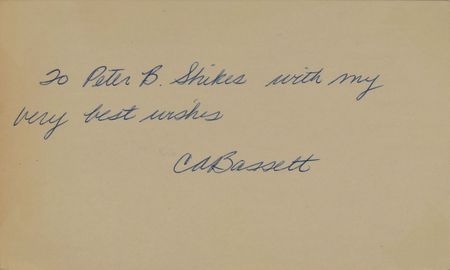 To Peter B. Shikes with my
very best wishes
CABassett